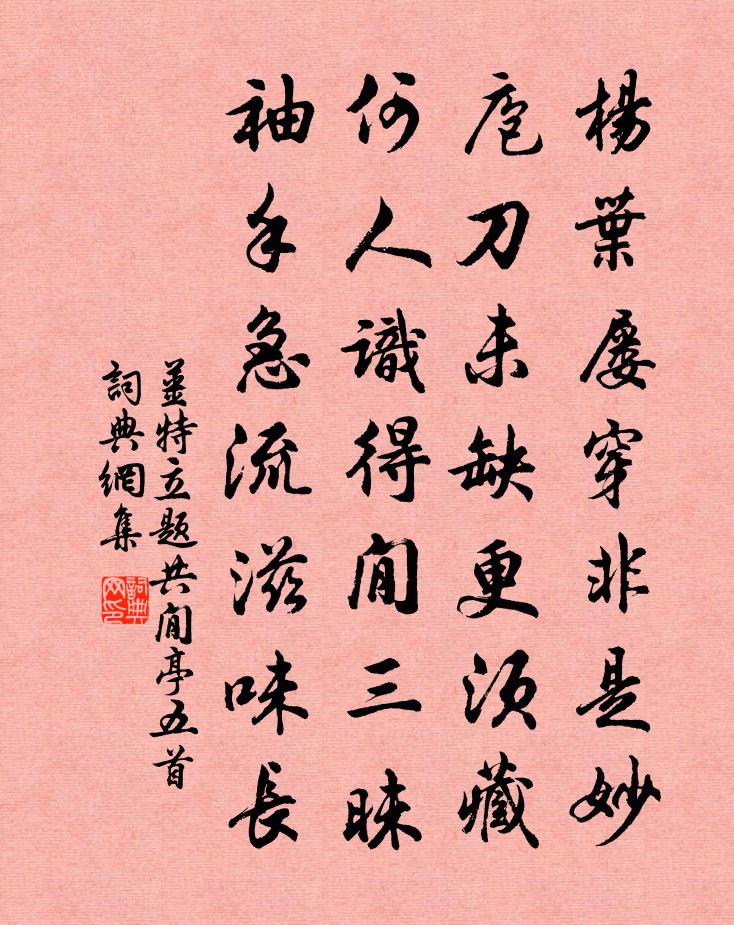 楊葉屡穿非是妙
庖刀未缺更須藏
何人識得閒三昧
袖手急流滋味長
姜特立題共閒亭五首
詞典網集
詞典網印